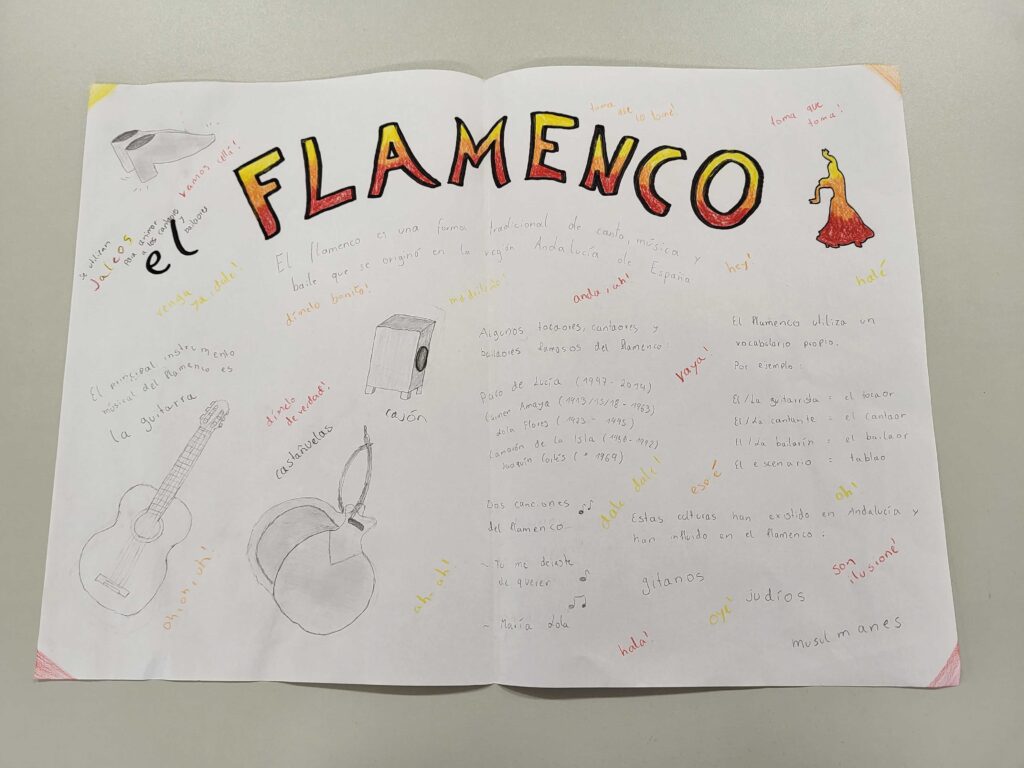 el FLAMENCO
toma que
toma!
Vamos allá!
se utilizan
Jaleos
para animar
a los cantaores y
bailaores
El flamenco es una forma tradicional de canto, música y
baile que se originó en la región Andalucía de España
venga
ya, dale!
dímelo bonito!
anda, uh!
hey!
halé
El principal instrumento
musical del flamenco es
la guitarra
dímelo
de verdad!
cajón
castañuelas
oh, oh, uh!
ah, oh!
Algunos tocaores, cantaores y
bailaores famosos del flamenco:
Paco de Lucía (1947 - 2014)
Carmen Amaya (1913/15/18 - 1963)
Lola Flores (1923 - 1995)
Camarón de la Isla (1950 - 1992)
Joaquín Cortés (* 1969)
vaya!
Dos canciones
del flamenco
~ Tu me dejaste
de querer
~ María Lola
dale dale!
eso é
El flamenco utiliza un
vocabulario propio.
Por ejemplo:
El/La guitarrista = el tocaor
El/La cantante = el cantaor
El/La bailarín = el bailaor
El escenario = tablao
ah!
Estas culturas han existido en Andalucía y
han influido en el flamenco:
gitanos
judíos
musulmanes
son
ilusioné
oye!
hala!